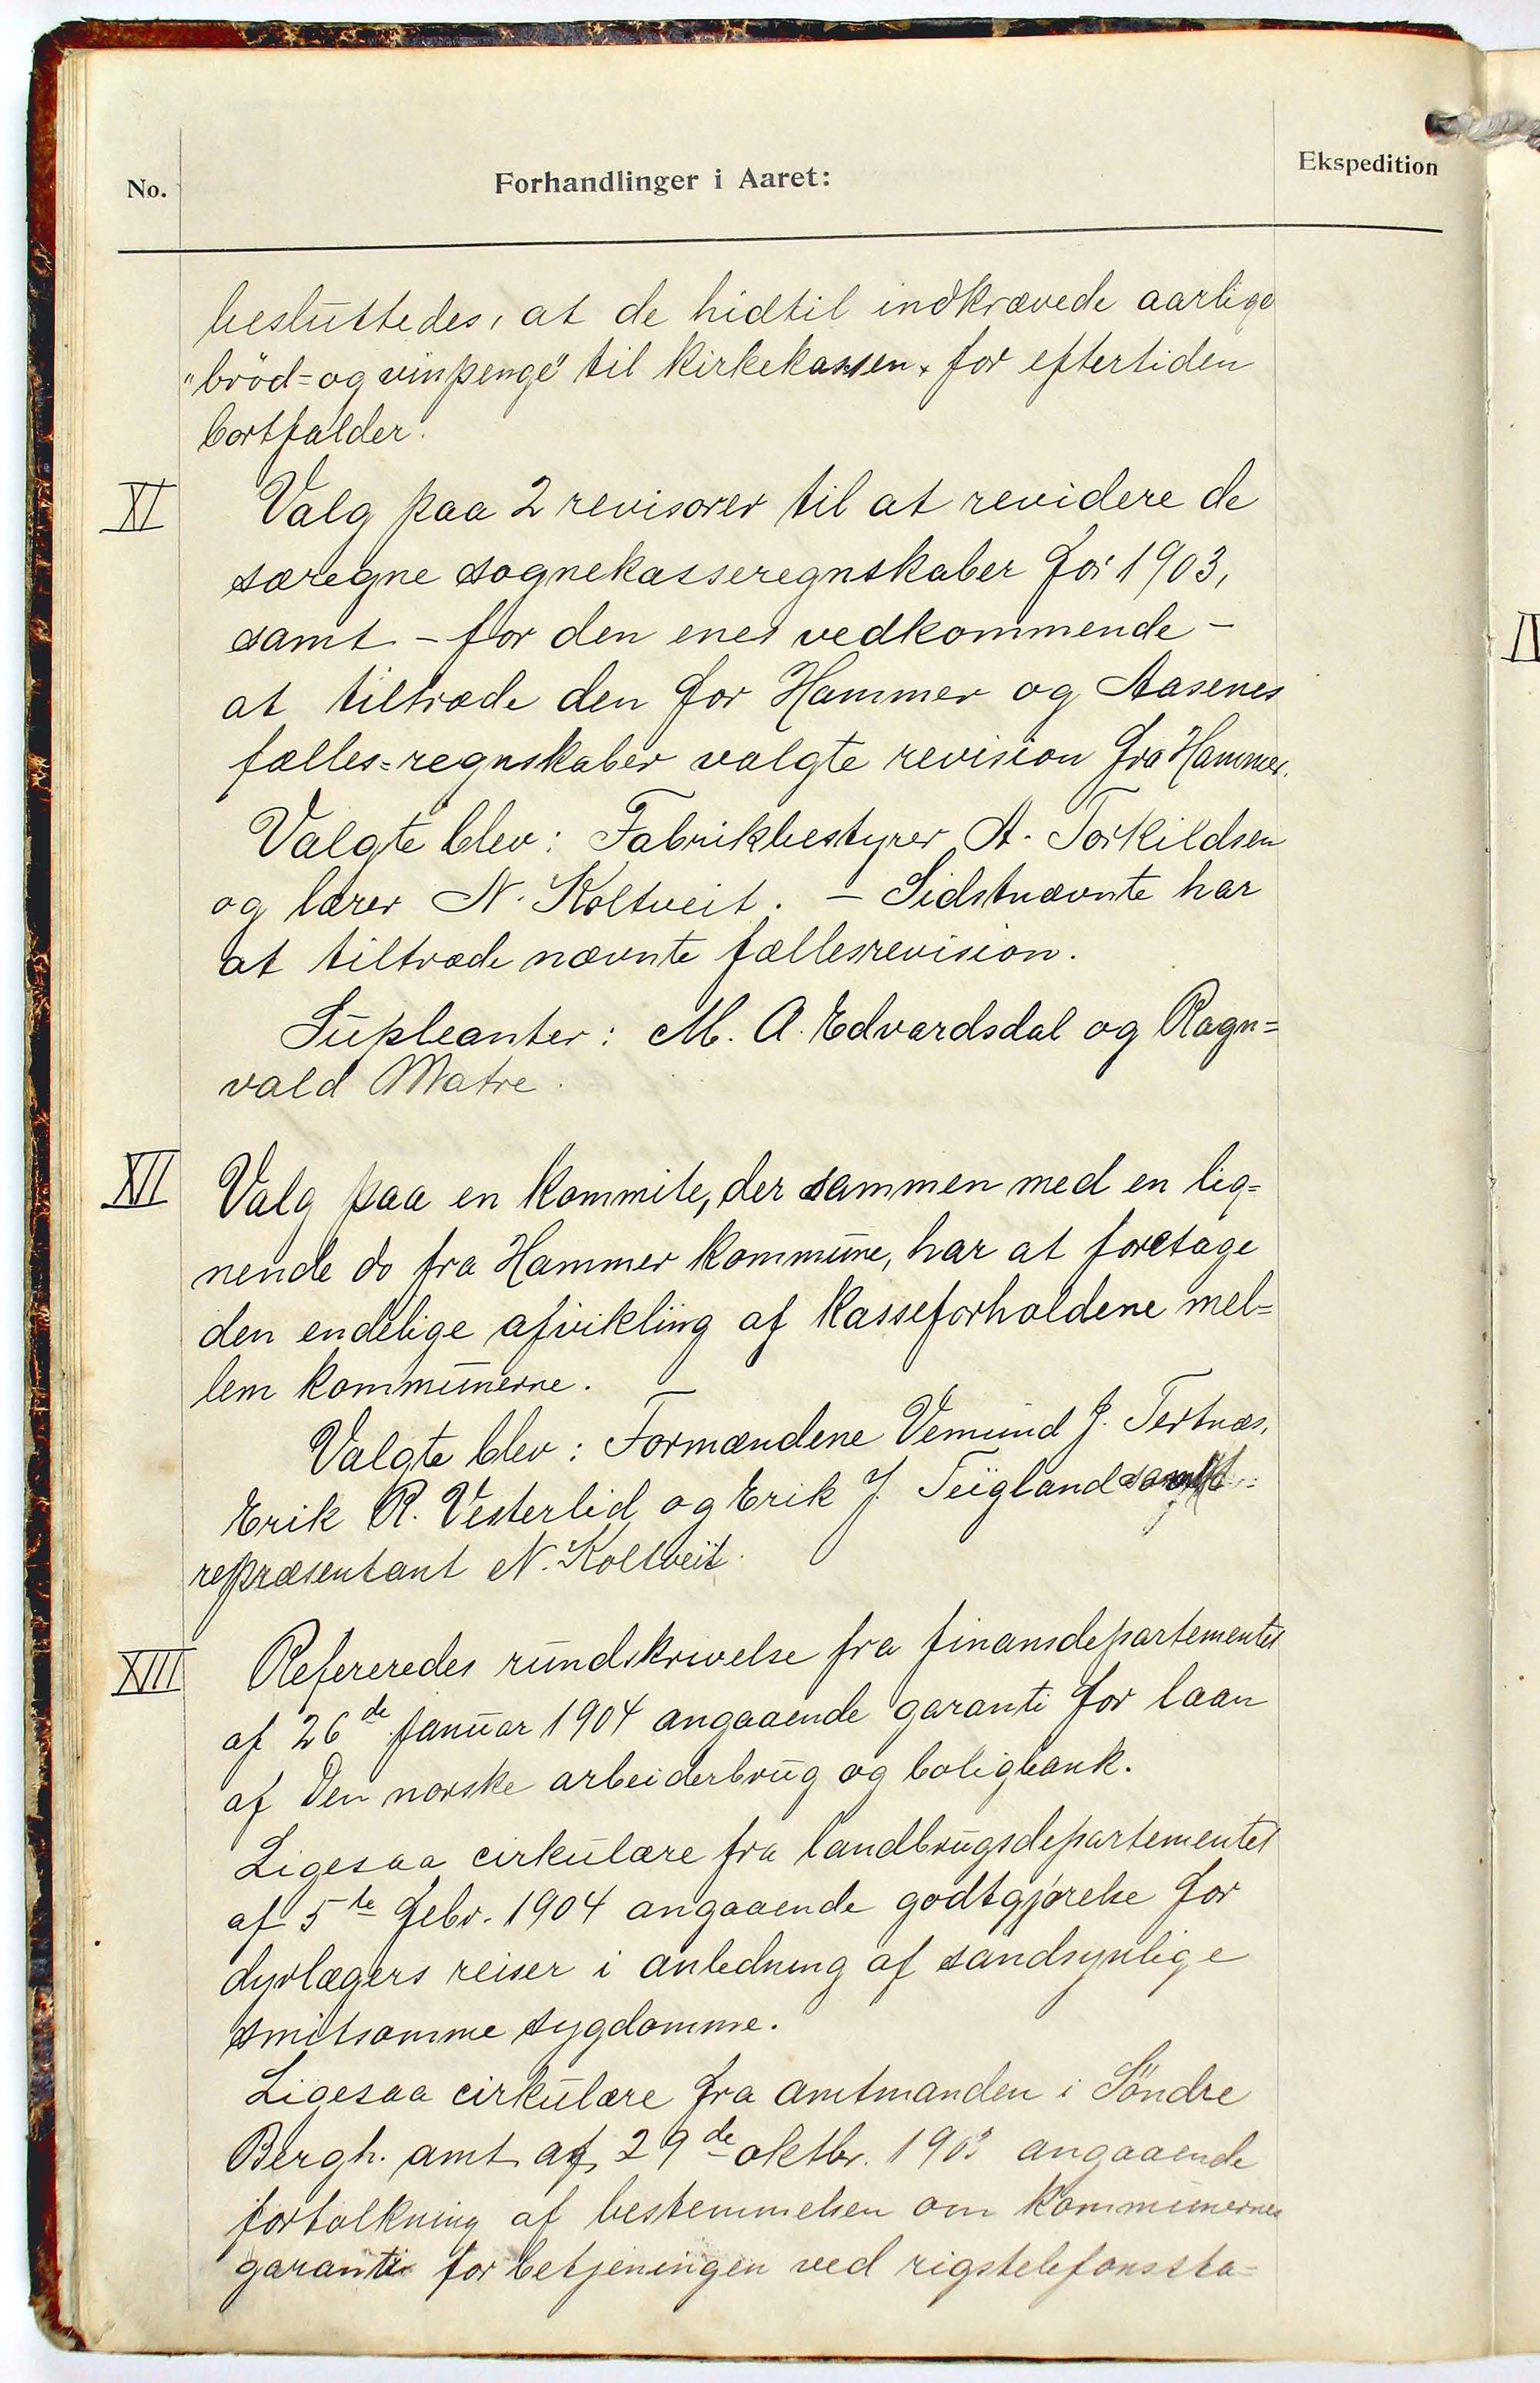 No.
Forhandlinger i Aaret:
Ekspedition
besluttedes, at de hidtil indkrævede aarlige
"brød= og vinpenge" til kirkekassen for eftertiden
bortfalder.
XI
Valg paa 2 revisorer til at revidere de
særegne sognekasseregnskaber for 1903,
samt – for den enes vedkommende –
at tiltræde den for Hammer og Aasenes
fælles=regnskaber valgte revision fra Hammer.
Valgte blev: Fabrikbestyrer A. Torkildsen
og lærer N. Koltveit. – Sidstnævnte har
at tiltræde nævnte fællesrevision.
Supleanter: M. A. Edvardsdal og Ragn=
vald Matre.
XII
Valg paa en kommite, der sammen med en lig=
nende do fra Hammer kommune, har at foretage
den endelige afvikling af kasseforholdene mel=
lem kommunerne.
Valgte blev: Formændene Vemund J. Tertnæs,
Erik R. Vesterlid og Erik J. Teigland samt
repræsentant N. Koltveit.
XIII
Refereredes rundskrivelse fra finansdepartementet
af 26de januar 1904 angaaende garanti for laan
af Den norske arbeiderbrug og boligbank.
Ligesaa cirkulære fra landbrugsdepartementet
af 5te febr. 1904 angaaende godtgjørelse for
dyrlægers reiser i anledning af sandsynlige
smitsomme sygdomme.
Ligesaa cirkulære fra amtmanden i Söndre
Bergh. amt af 29de oktbr. 1903 angaaende
fortolkning af bestemmelsen om kommunernes
garanti for betjeningen ved rigstelefonssta=